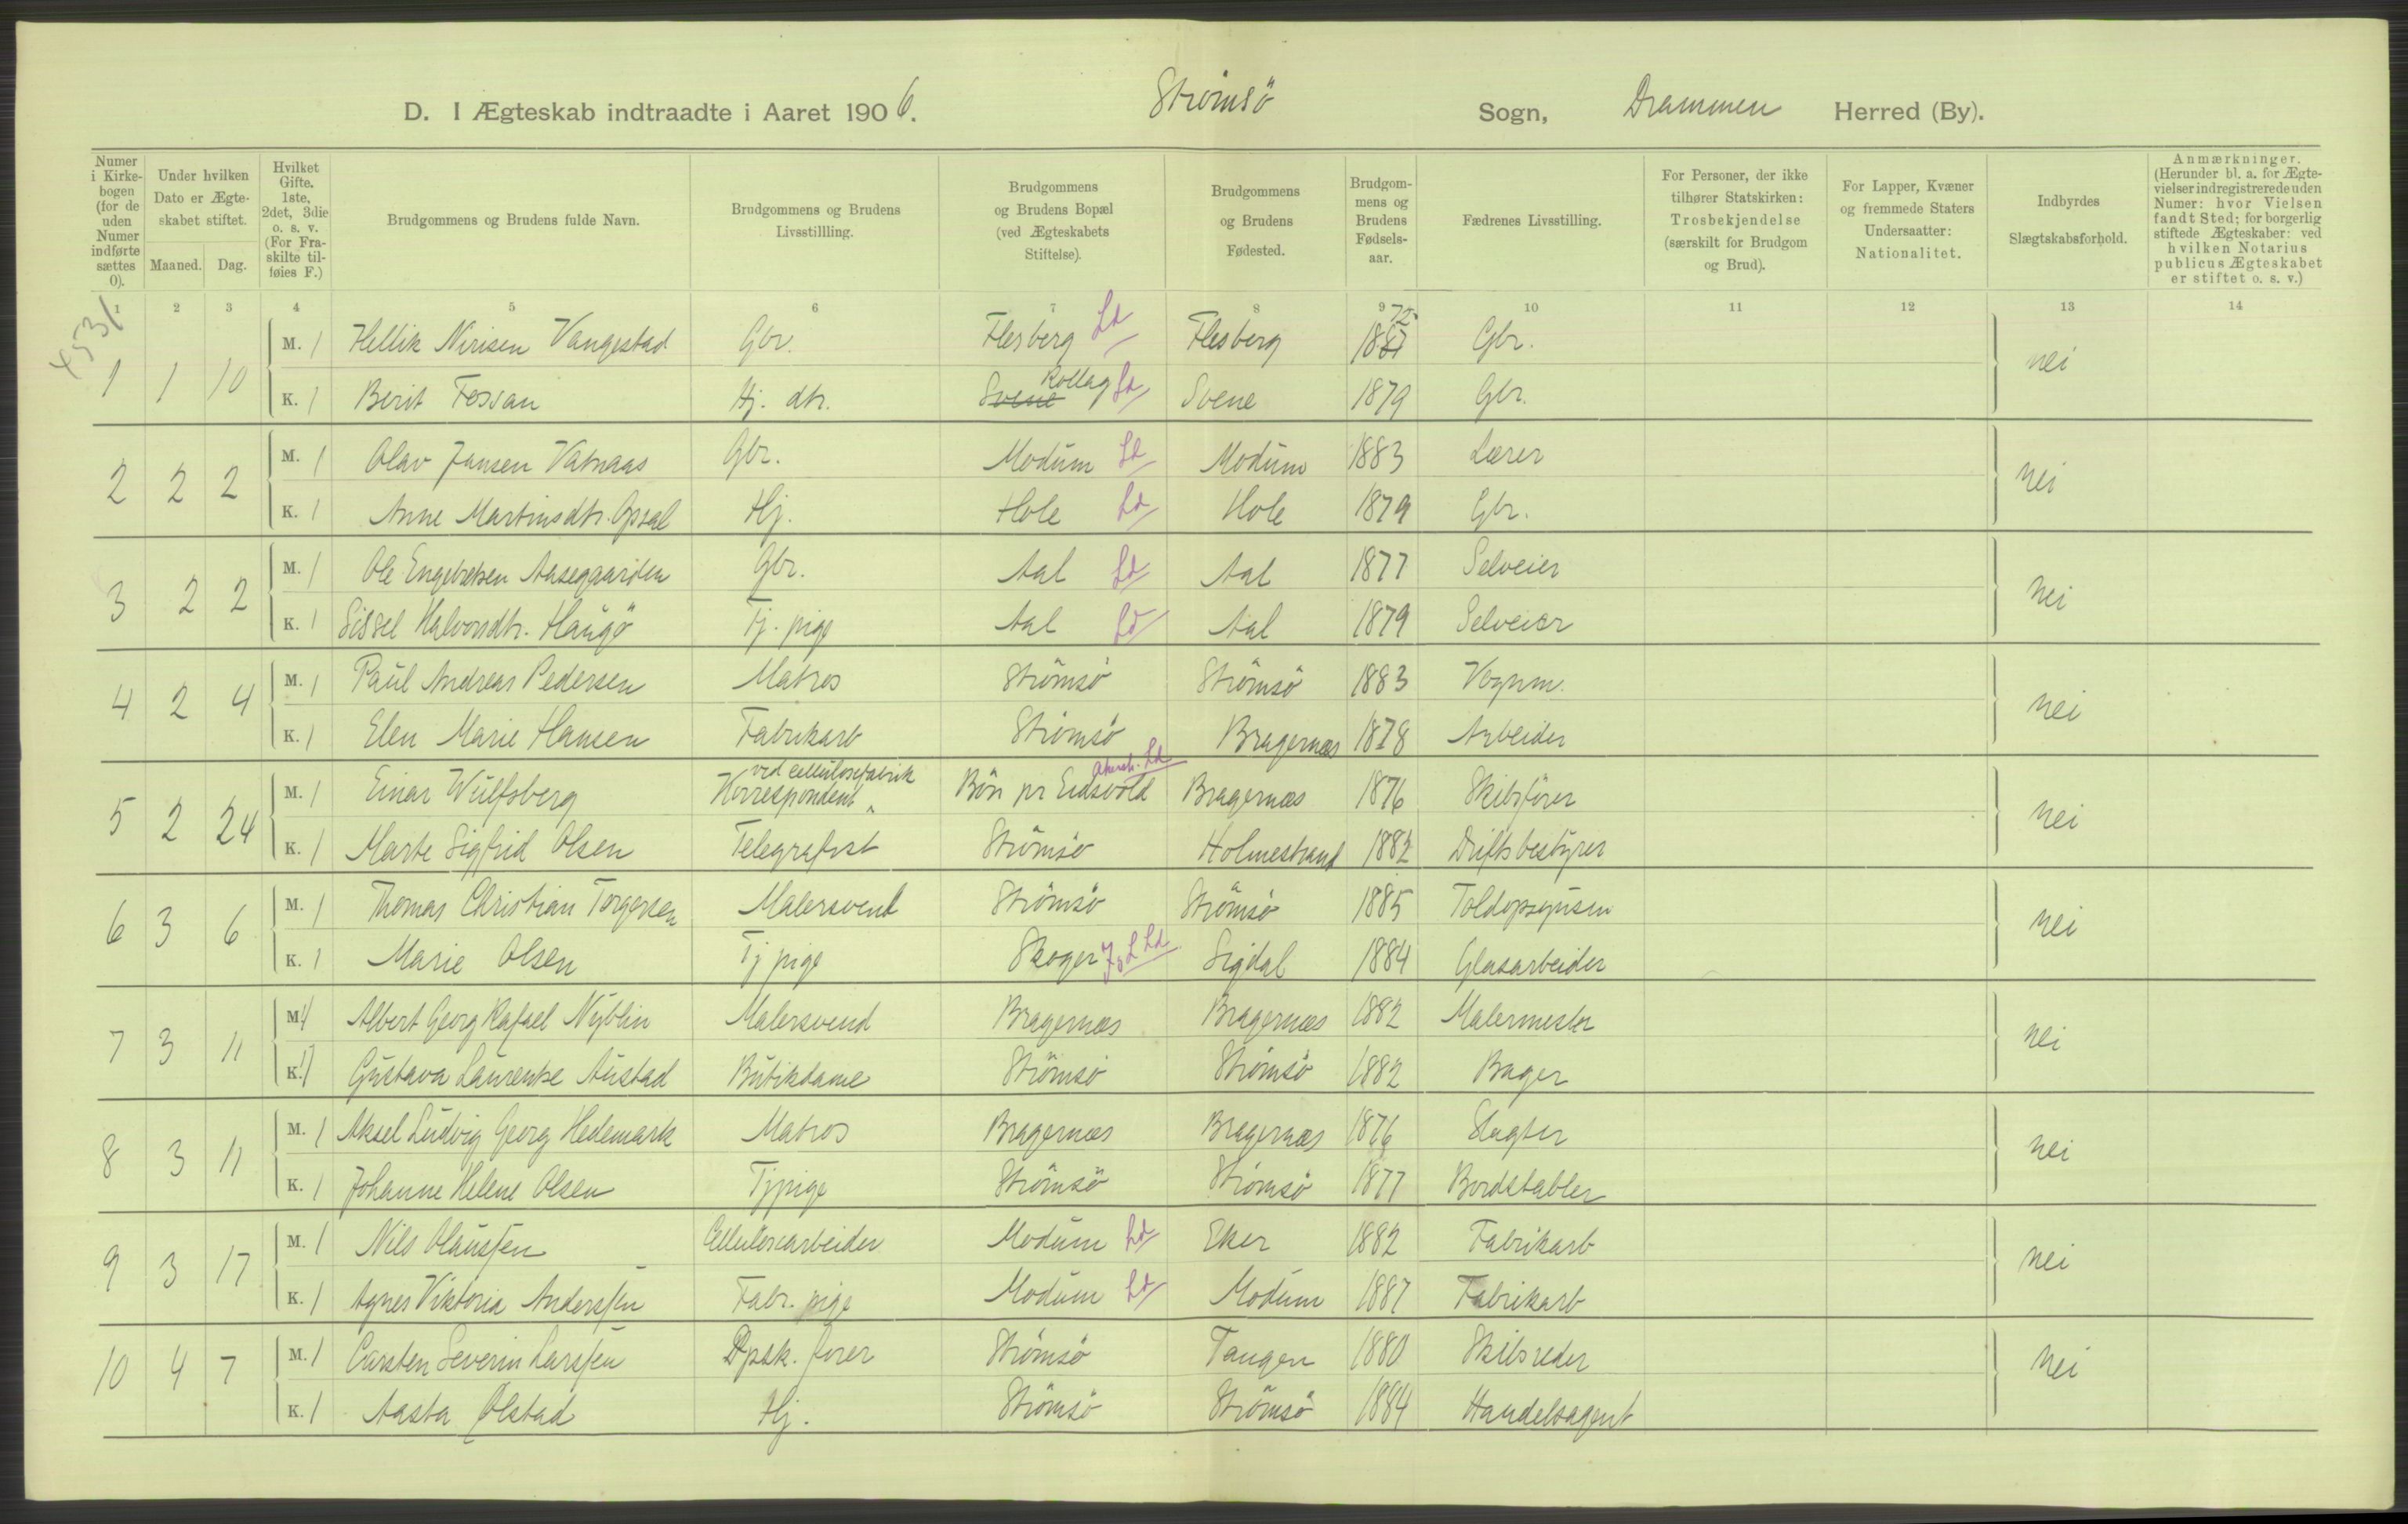 D. I Ægteskab indtraadte i Aaret 1906. Strömsö Sogn, Drammen Herred (By).
Numer i Kirkebogen (for de uden Numer indførte sættes 0).
Under hvilken Dato er Ægteskabet stiftet.
Maaned. Dag.
Hvilket Gifte. 1ste, 2det, 3die o. s. v. (For Fraskilte tilføies F.)
Brudgommens og Brudens fulde Navn.
Brudgommens og Brudens Livsstillling.
Brudgommens og Brudens Bopæl (ved Ægteskabets Stiftelse).
Brudgommens og Brudens Fødested.
Brudgommens og Brudens Fødselsaar.
Fædrenes Livsstilling.
For Personer, der ikke tilhører Statskirken: Trosbekjendelse (særskilt for Brudgom og Brud).
For Lapper, Kvæner og fremmede Staters Undersaatter: Nationalitet.
Indbyrdes Slægtskabsforhold.
Anmærkninger. (Herunder bl. a. for Ægtevielser indregistrerede uden Numer: hvor Vielsen fandt Sted; for borgerlig stiftede Ægteskaber: ved hvilken Notarius publicus Ægteskabet er stiftet o. s. v.)
1 2 3 4 5 6 7 8 9 10 11 12 13 14
4531
1 1 10 M. 1 Hellik Nirisen Vangestad Gbr. Flesberg Ld Flesberg 72 Gbr. nei
K. 1 Berit Fossan Hj. dtr. Svene Rollag Ld Svene 1879 Gbr.
2 2 2 M. 1 Olav Jansen Vatnaas Gbr. Modum Ld Modum 1883 Lærer nei
K. 1 Anne Martinsdtr. Opsal Hj. Hole Ld Hole 1879 Gbr.
3 2 2 M. 1 Ole Engebretsen Aasegaarden Gbr. Aal Ld Aal 1877 Selveier nei
K. 1 Sissel Halvorsdtr. Haugö Tj. pige Aal Ld Aal 1879 Selveier
4 2 4 M. 1 Paul Andreas Pedersen Matros Strömsö Strömsö 1883 Vognm. nei
K. 1 Elen Marie Hansen Fabrikarb Strömsö Bragernæs 1878 Arbeider
5 2 24 M. 1 Einar Wulfsberg Korrespondent ved Cellulosefabrik Bön pr Eidsvold Akersh. Ld Bragernæs 1876 Skibsfører nei
K. 1 Marte Sigfrid Olsen Telegrafist Strömsö Holmestrand 1882 Driftsbestyrer
6 3 6 M. 1 Thomas Christian Torgersen Malersvend Strömsö Strömsö 1885 Toldopsynsm nei
K. 1 Marie Olsen Tj pige Skoger J L Ld Sigdal 1884 Glasarbeider
7 3 11 M. 1 Albert Georg Rafael Nyblin Malersvend Bragernæs Bragernæs 1882 Malermester nei
K. 1 Gustava Laurentse Austad Butikdame Strömsö Strömsö 1882 Bager
8 3 11 M. 1 Aksel Ludvig Georg Hedemark Matros Bragernæs Bragernæs 1876 Slagter nei
K. 1 Johanne Helene Olsen Tjpige Strömsö Strömsö 1877 Bordstabler
9 3 17 M. 1 Nils Olaussen Cellulosearbeider Modum Ld Eker 1882 Fabrikarb nei
K. 1 Agnes Viktoria Anderssen Fabr. pige Modum Ld Modum 1887 Fabrikarb
10 4 7 M. 1 Carsten Severin Larssen Dpsk. fører Strömsö Tangen 1880 Skibsreder nei
K. 1 Aasta Olstad Hj. Strömsö Strömsö 1884 Handelsagent